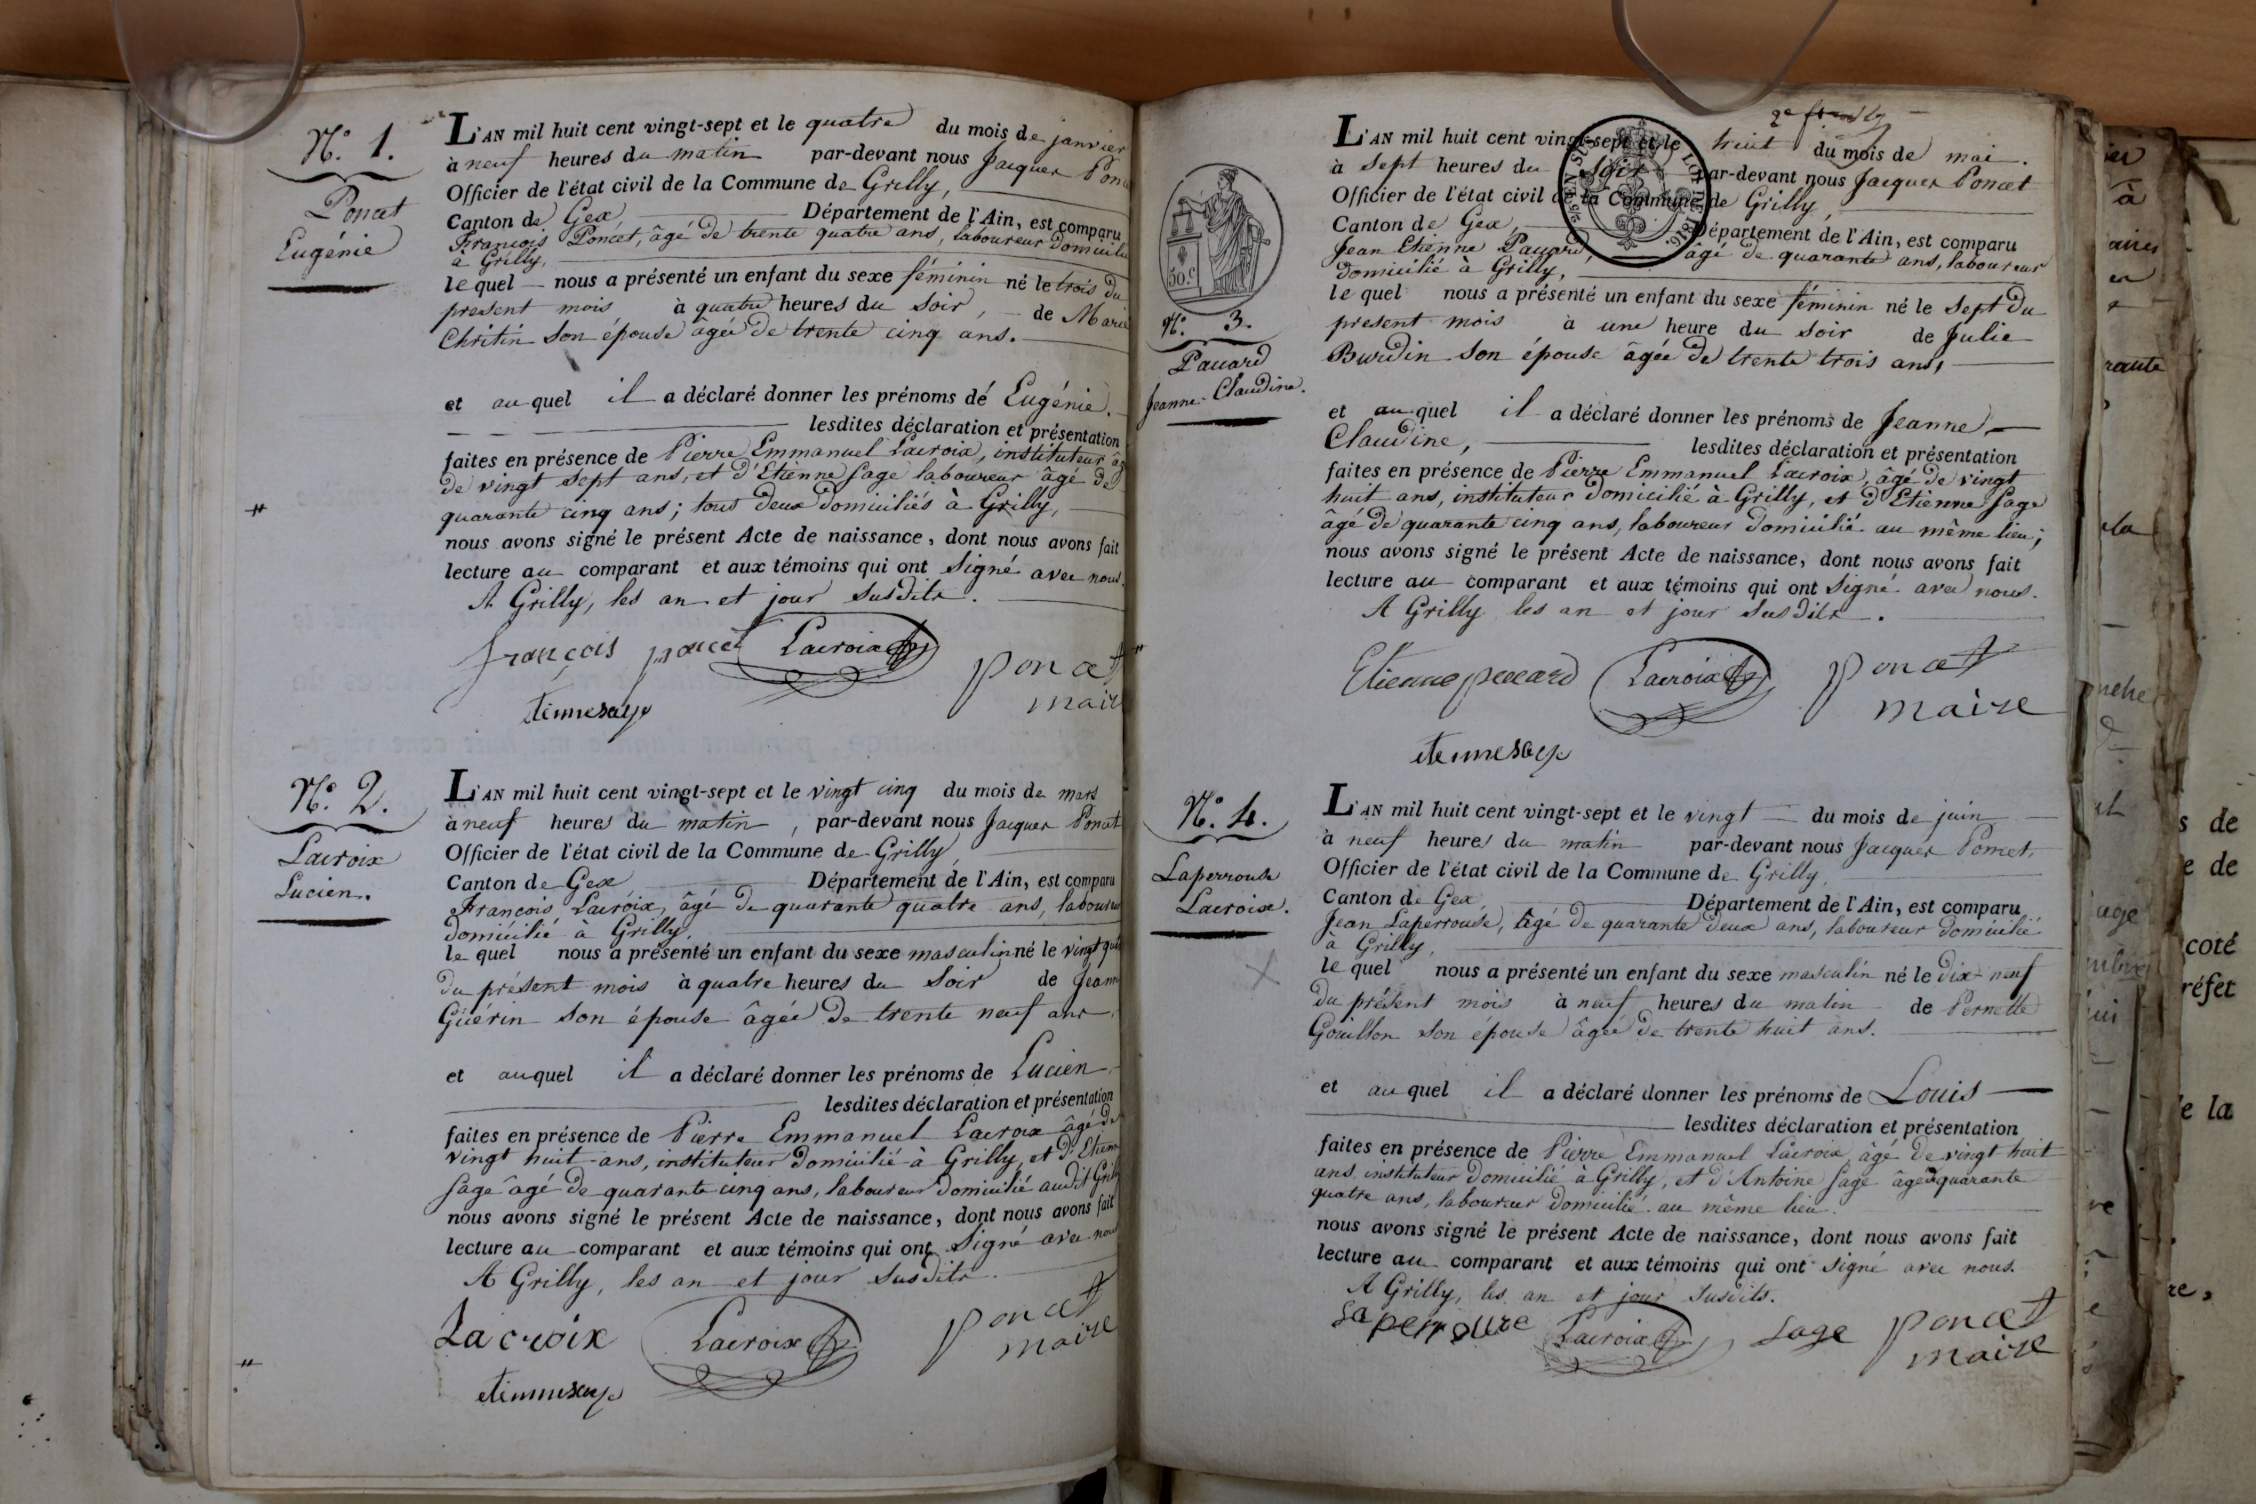 N.º 1.
Poncet
Eugénie
L'AN mil huit cent vingt-sept et le quatre du mois de janvier
à neuf heures du matin par-devant nous Jacques Ponc
Officier de l'état civil de la Commune de Grilly,
Canton de Gex, Département de l'Ain, est comparu
François Poncet, âgé de trente quatre ans, laboureur domicilié
à Grilly,
lequel nous a présenté un enfant du sexe féminin né le trois du
present mois à quatre heures du soir, de Marie
Chritin son épouse âgée de trente cinq ans.
et auquel il a déclaré donner les prénoms de Eugénie.
lesdites déclaration et présentation
faites en présence de Pierre Emmanuel Lacroix, instituteur âg
de vingt sept ans, et d'Etienne Sage laboureur âgé de
quarante cinq ans; tous deux domiciliés à Grilly,
nous avons signé le présent Acte de naissance, dont nous avons fait
lecture au comparant et aux témoins qui ont signé avec nous.
A Grilly, les an et jour susdits.
françois poncet Lacroix poncet
maire
etienne sage
N.º 2.
Lacroix
Lucien.
L'AN mil huit cent vingt-sept et le vingt cinq du mois de mars
à neuf heures du matin, par-devant nous Jacques Poncet
Officier de l'état civil de la Commune de Grilly,
Canton de Gex Département de l'Ain, est comparu
François Lacroix, âgé de quarante quatre ans, laboureur
domicilié à Grilly,
lequel nous a présenté un enfant du sexe masculin né le vingt qua
du présent mois à quatre heures du soir de Jeanne
Guérin son épouse âgée de trente neuf ans,
et auquel il a déclaré donner les prénoms de Lucien
lesdites déclaration et présentation
faites en présence de Pierre Emmanuel Lacroix âgé de
vingt huit ans, instituteur domicilié à Grilly, et d'Etienne
Sage âgé de quarante cinq ans, laboureur domicilié audit Grilly
nous avons signé le présent Acte de naissance, dont nous avons fait
lecture au comparant et aux témoins qui ont signé avec nous
A Grilly, les an et jour susdits.
Lacroix Lacroix poncet
maire
etienne sage
50 C.
N.º 3.
Pauard
Jeanne-Claudine.
LOI DE 1816
L'AN mil huit cent vingt-sept et le huit du mois de mai.
à sept heures du soir par-devant nous Jacques Poncet
Officier de l'état civil de la Commune de Grilly,
Canton de Gex, Département de l'Ain, est comparu
Jean Etienne Pauard, âgé de quarante ans, laboureur
domicilié à Grilly,
lequel nous a présenté un enfant du sexe féminin né le sept du
present mois à une heure du soir de Julie
Burdin son épouse âgée de trente trois ans,
et auquel il a déclaré donner les prénoms de Jeanne
Claudine, lesdites déclaration et présentation
faites en présence de Pierre Emmanuel Lacroix, âgé de vingt
huit ans, instituteur domicilié à Grilly, et d'Etienne Sage
âgé de quarante cinq ans, laboureur domicilié au même lieu;
nous avons signé le présent Acte de naissance, dont nous avons fait
lecture au comparant et aux témoins qui ont signé avec nous.
A Grilly les an et jour susdits.
Etienne pauard Lacroix poncet
maire
etienne sage
N.º 4.
Laperrouse
Lacroix.
L'AN mil huit cent vingt-sept et le vingt du mois de juin
à neuf heures du matin par-devant nous Jacques Poncet,
Officier de l'état civil de la Commune de Grilly,
Canton de Gex Département de l'Ain, est comparu
Jean Laperrouse, âgé de quarante deux ans, laboureur domicilié
à Grilly,
lequel nous a présenté un enfant du sexe masculin né le dix-neuf
du présent mois à neuf heures du matin de Pernette
Gouillon son épouse âgée de trente huit ans.
et auquel il a déclaré donner les prénoms de Louis
lesdites déclaration et présentation
faites en présence de Pierre Emmanuel Lacroix, âgé de vingt huit
ans instituteur domicilié à Grilly, et d'Antoine Sage âgé quarante
quatre ans, laboureur domicilié au même lieu.
nous avons signé le présent Acte de naissance, dont nous avons fait
lecture au comparant et aux témoins qui ont signé avec nous.
A Grilly, les an et jour susdits.
Laperrouse Lacroix Sage poncet
maire
s de
e de
coté
réfet
e la
re,